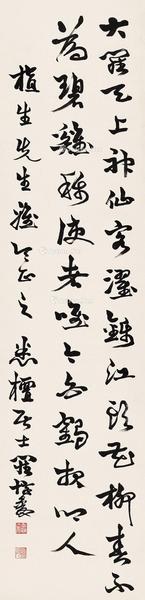 大羅天上神仙客濯錦江頭花柳春不
為碧雞稱使者唯令白鶴報鄉人
植生先生正之 悉檀居士羅惇㬊